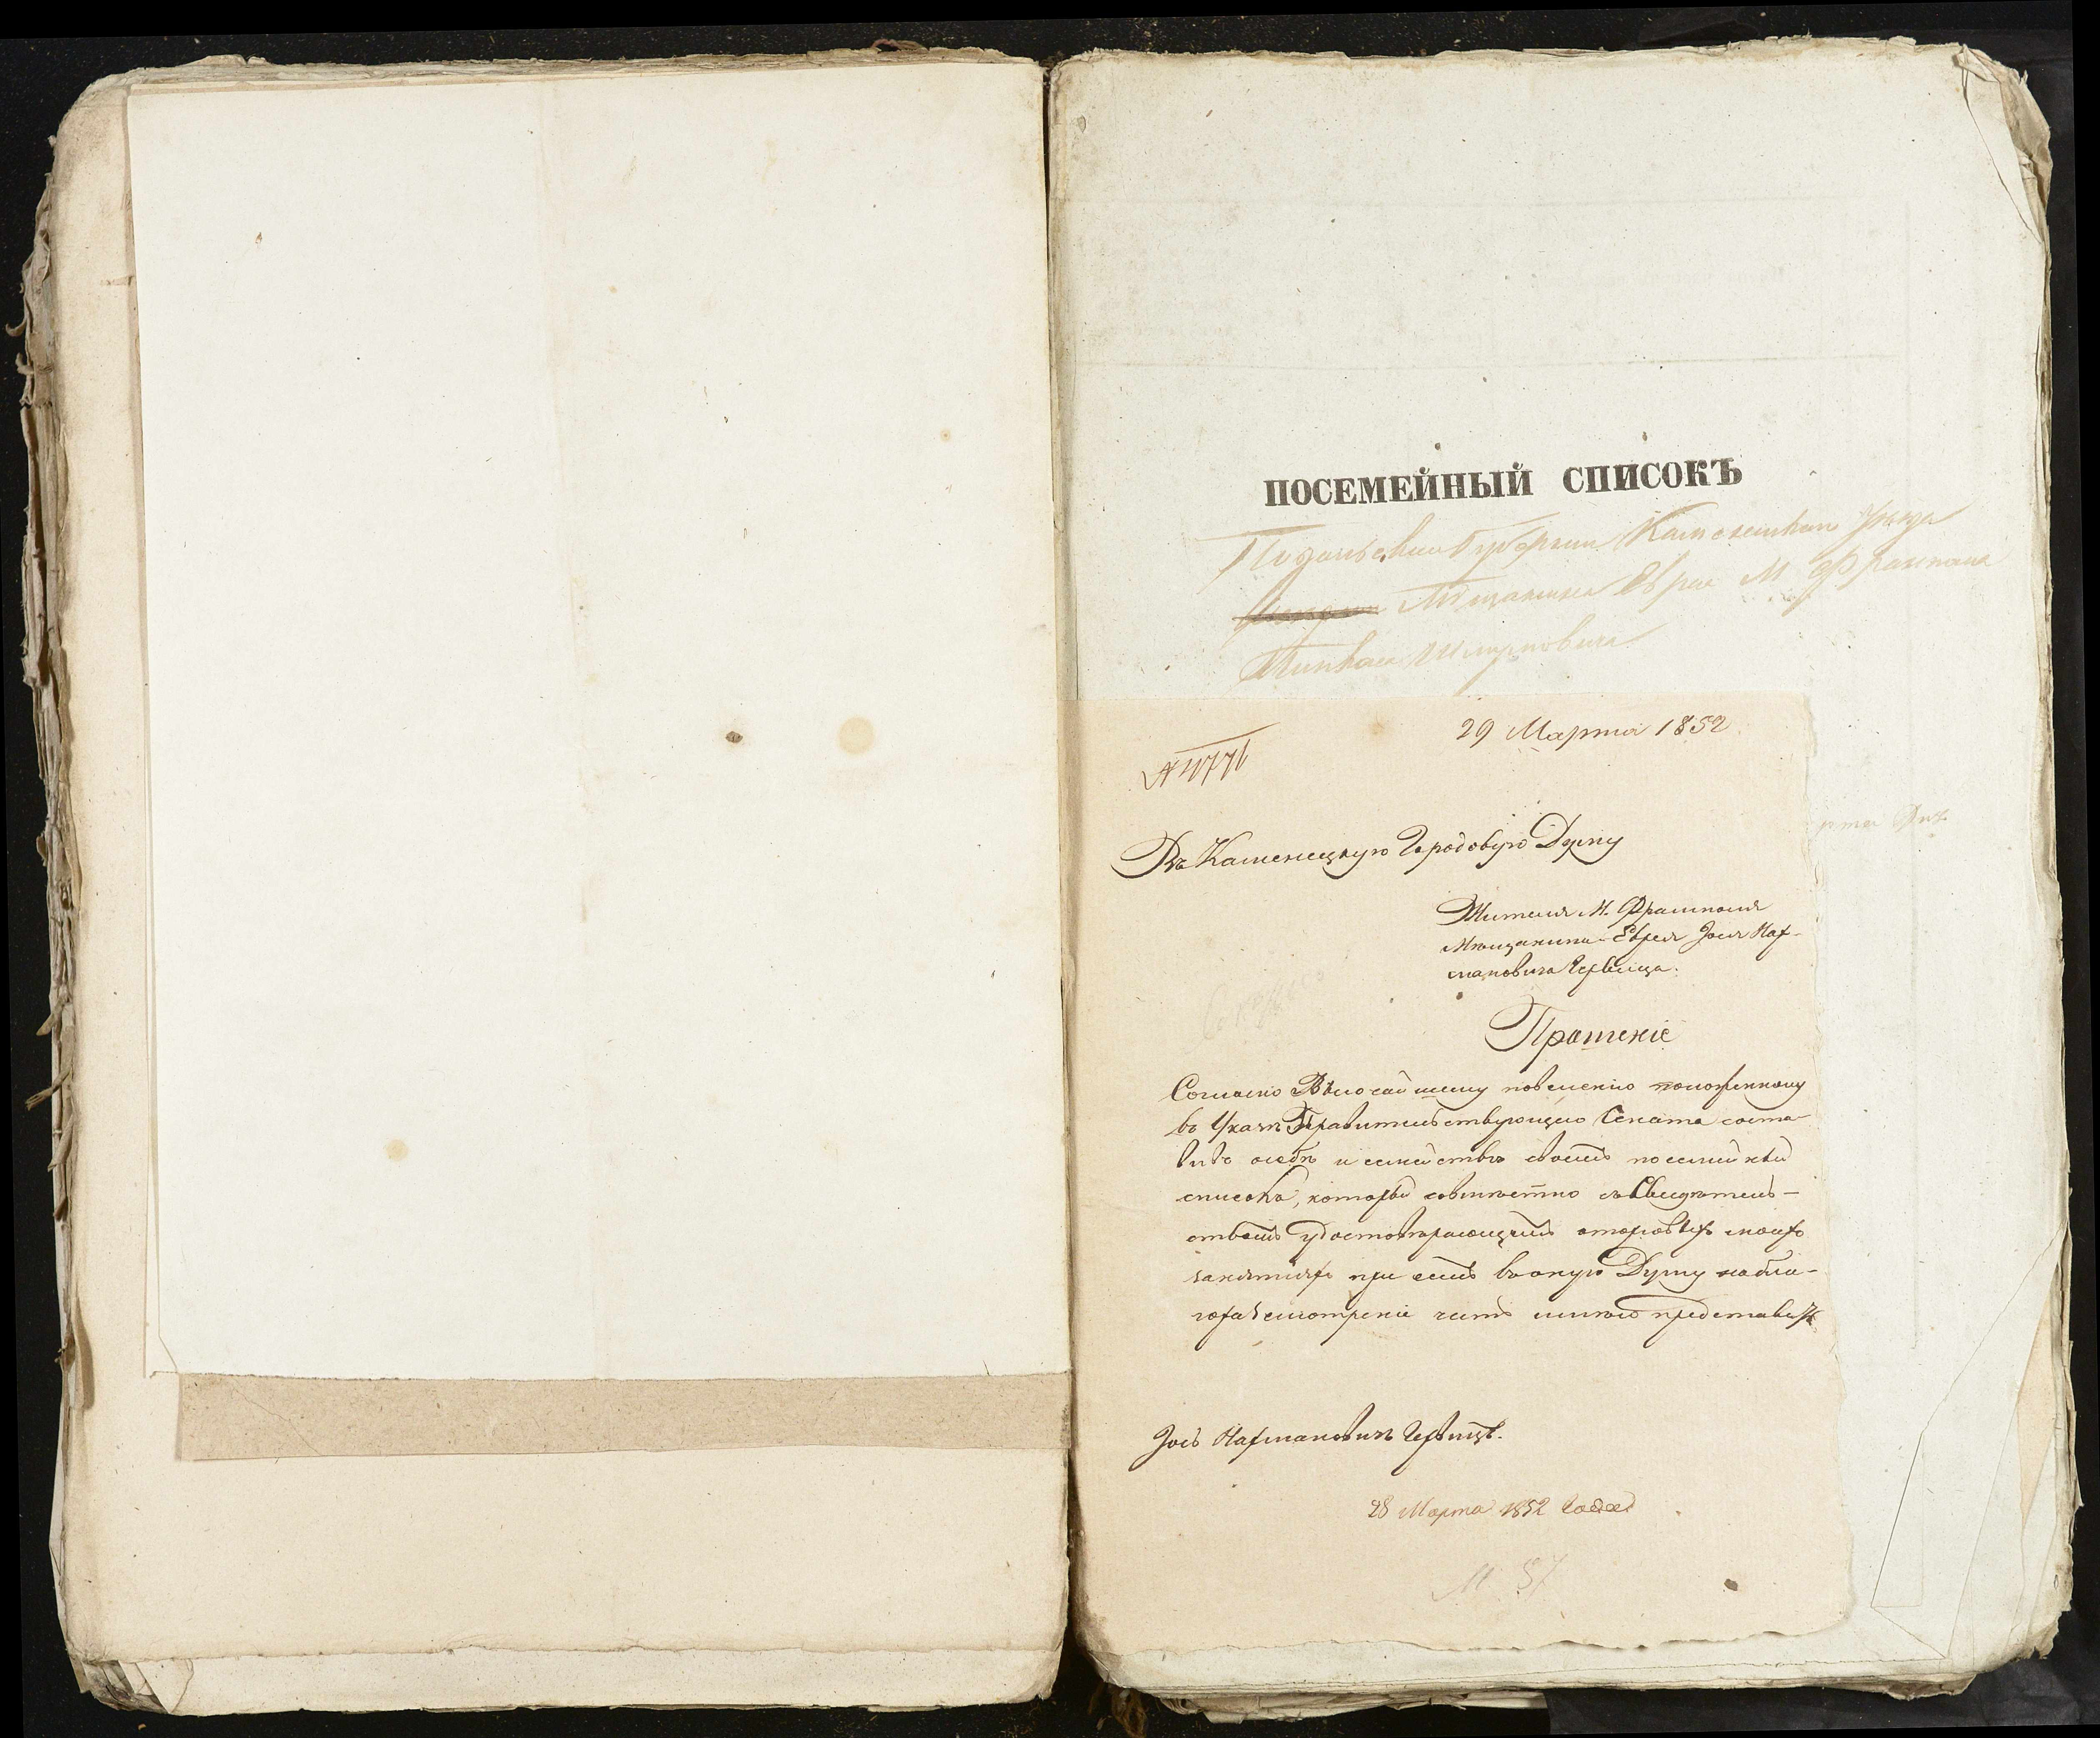 ПОСЕМЕЙНЫЙ СПИСОКЪ
Подольской Губерніи Каменецкаго Уѣзда
Мѣщанина Еврея М Фрампола
29 Марта 1852
Въ Каменецкую Городовую Думу
Жителя М. Фрамполя
Мѣщанина Еврея Іося Нах-
мановича Гервица.
Прошеніе
Согласно Высочайшему повеленію положенному
въ Указѣ Правительствующаго Сената соста-
вивъ о себѣ и семействѣ своемъ посемейный
списокъ, который совместно съ Свидѣтель-
ствомъ удостоверяющимъ о торговыхъ моихъ
занятіяхъ при семъ въ оную Думу на бла-
горазсмотреніе честь имѣю представить
Іось Нахмановичъ Гервицъ.
28 Марта 1852 года